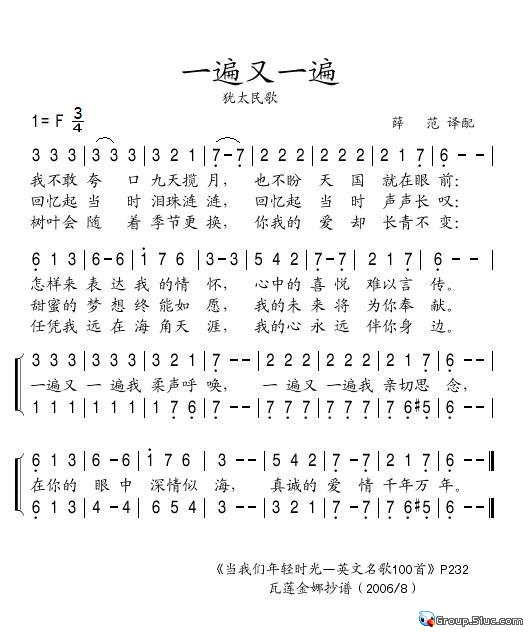 一遍又一遍
犹太民歌
1= F 3/4
薛 范 译配
3 3 3 | 3 3 3 | 3 2 1 | 7-7 | 2 2 2 | 2 2 2 | 2 1 7 | 6 - - |
我不敢 夸 口 九天揽 月， 也不盼 天 国 就在眼 前：
回忆起 当 时 泪珠涟 涟， 回忆起 当 时 声声长 叹：
树叶会 随 着 季节更 换， 你我的 爱 却 长青不 变：
6 1 3 | 6-6 | 1 7 6 | 3-3 | 5 4 2 | 7-7 | 2 1 7 | 6 - - |
怎样来 表 达 我的情 怀， 心中的 喜 悦 难以言 传。
甜蜜的 梦 想 终能如 愿， 我的未 来 将 为你奉 献。
任凭我 远 在 海角天 涯， 我的心 永 远 伴你身 边。
3 3 3 | 3 3 3 | 3 2 1 | 7 - - | 2 2 2 | 2 2 2 | 2 1 7 | 6 - - |
一遍又 一遍我 柔声呼 唤， 一遍又 一遍我 亲切思 念，
1 1 1 | 1 1 1 | 1 7 6 | 7 - - | 7 7 7 | 7 7 7 | 7 6 #5 | 6 - - |
6 1 3 | 6-6 | 1 7 6 | 3 - - | 5 4 2 | 7-7 | 2 1 7 | 6 - - ‖
在你的 眼 中 深情似 海， 真诚的 爱 情 千年万 年。
6 1 3 | 4-4 | 6 5 4 | 3 - - | 2 2 2 | 7-7 | 7 6 #5 | 6 - - ‖
《当我们年轻时光—英文名歌100首》P232
瓦莲金娜抄谱（2006/8）
Group.51uc.com